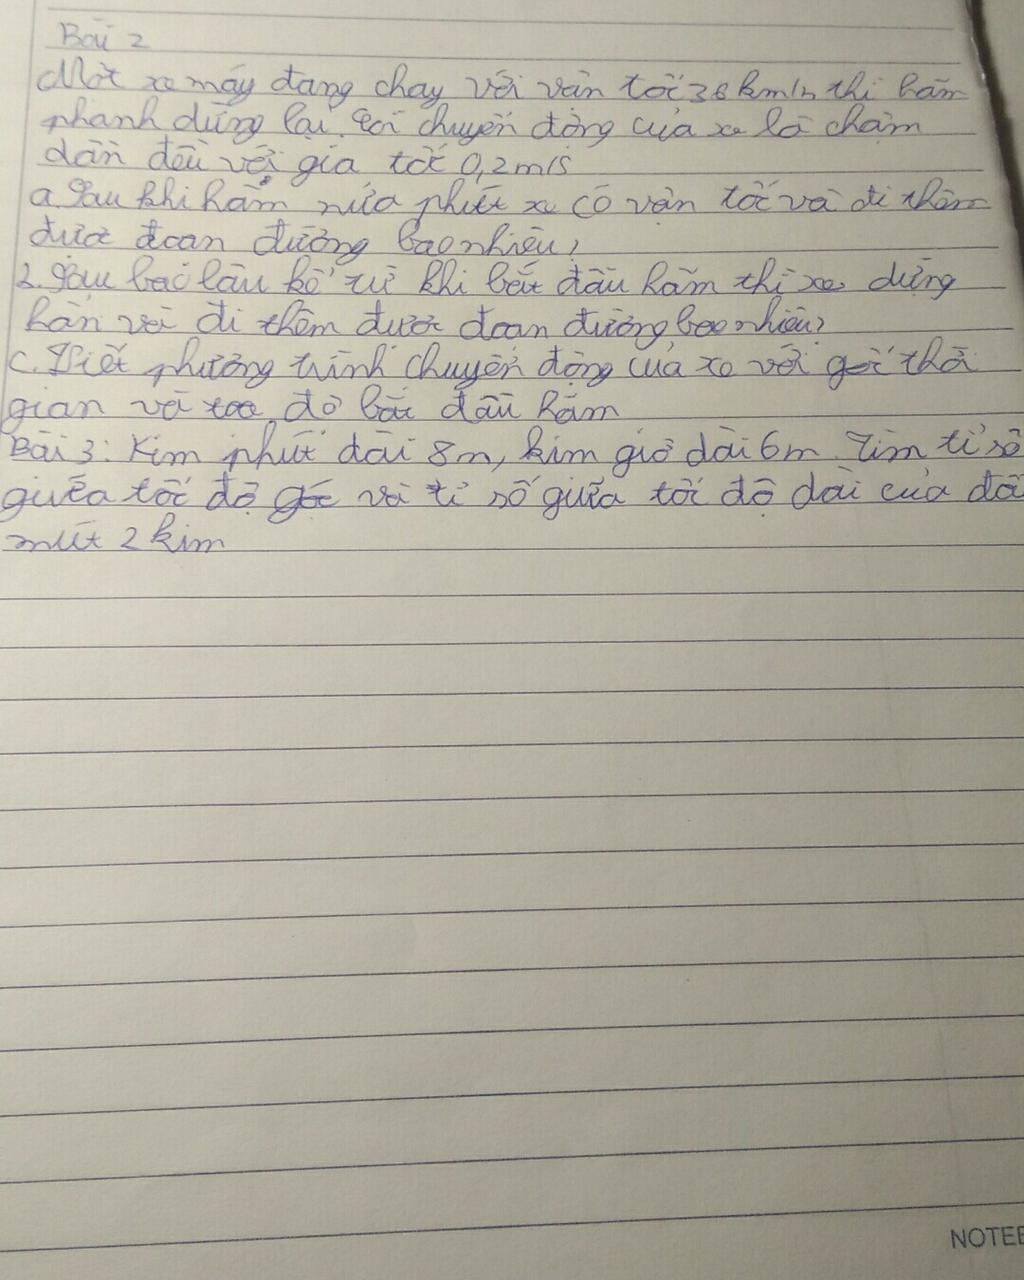 Bài 2
Một xe máy đang chạy với vận tốc 36 km/h thì hãm
phanh dừng lại. Coi chuyển động của xe là chậm
dần đều với gia tốc 0,2m/s
a. Sau khi hãm nửa phút xe có vận tốc và đi thêm
được đoạn đường bao nhiêu?
2. Sau bao lâu kể từ khi bắt đầu hãm thì xe dừng
hẳn và đi thêm được đoạn đường bao nhiêu?
c. Viết phương trình chuyển động của xe với gốc thời
gian và toạ độ bắt đầu hãm
Bài 3: Kim phút dài 8m, kim giờ dài 6m. Tìm tỉ số
giữa tốc độ góc và tỉ số giữa tốc độ dài của đầu
mút 2 kim
NOTEB